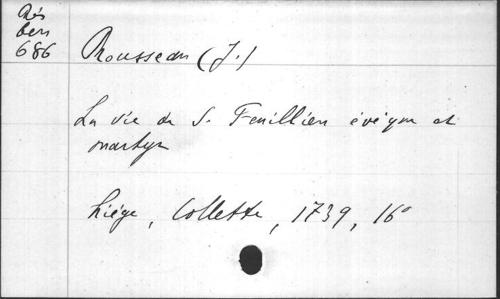 Rés
ben
686
Rousseau (J.)
La vie de S. Feuillien évêque et
martyr
Liége, Collette, 1739, 16°